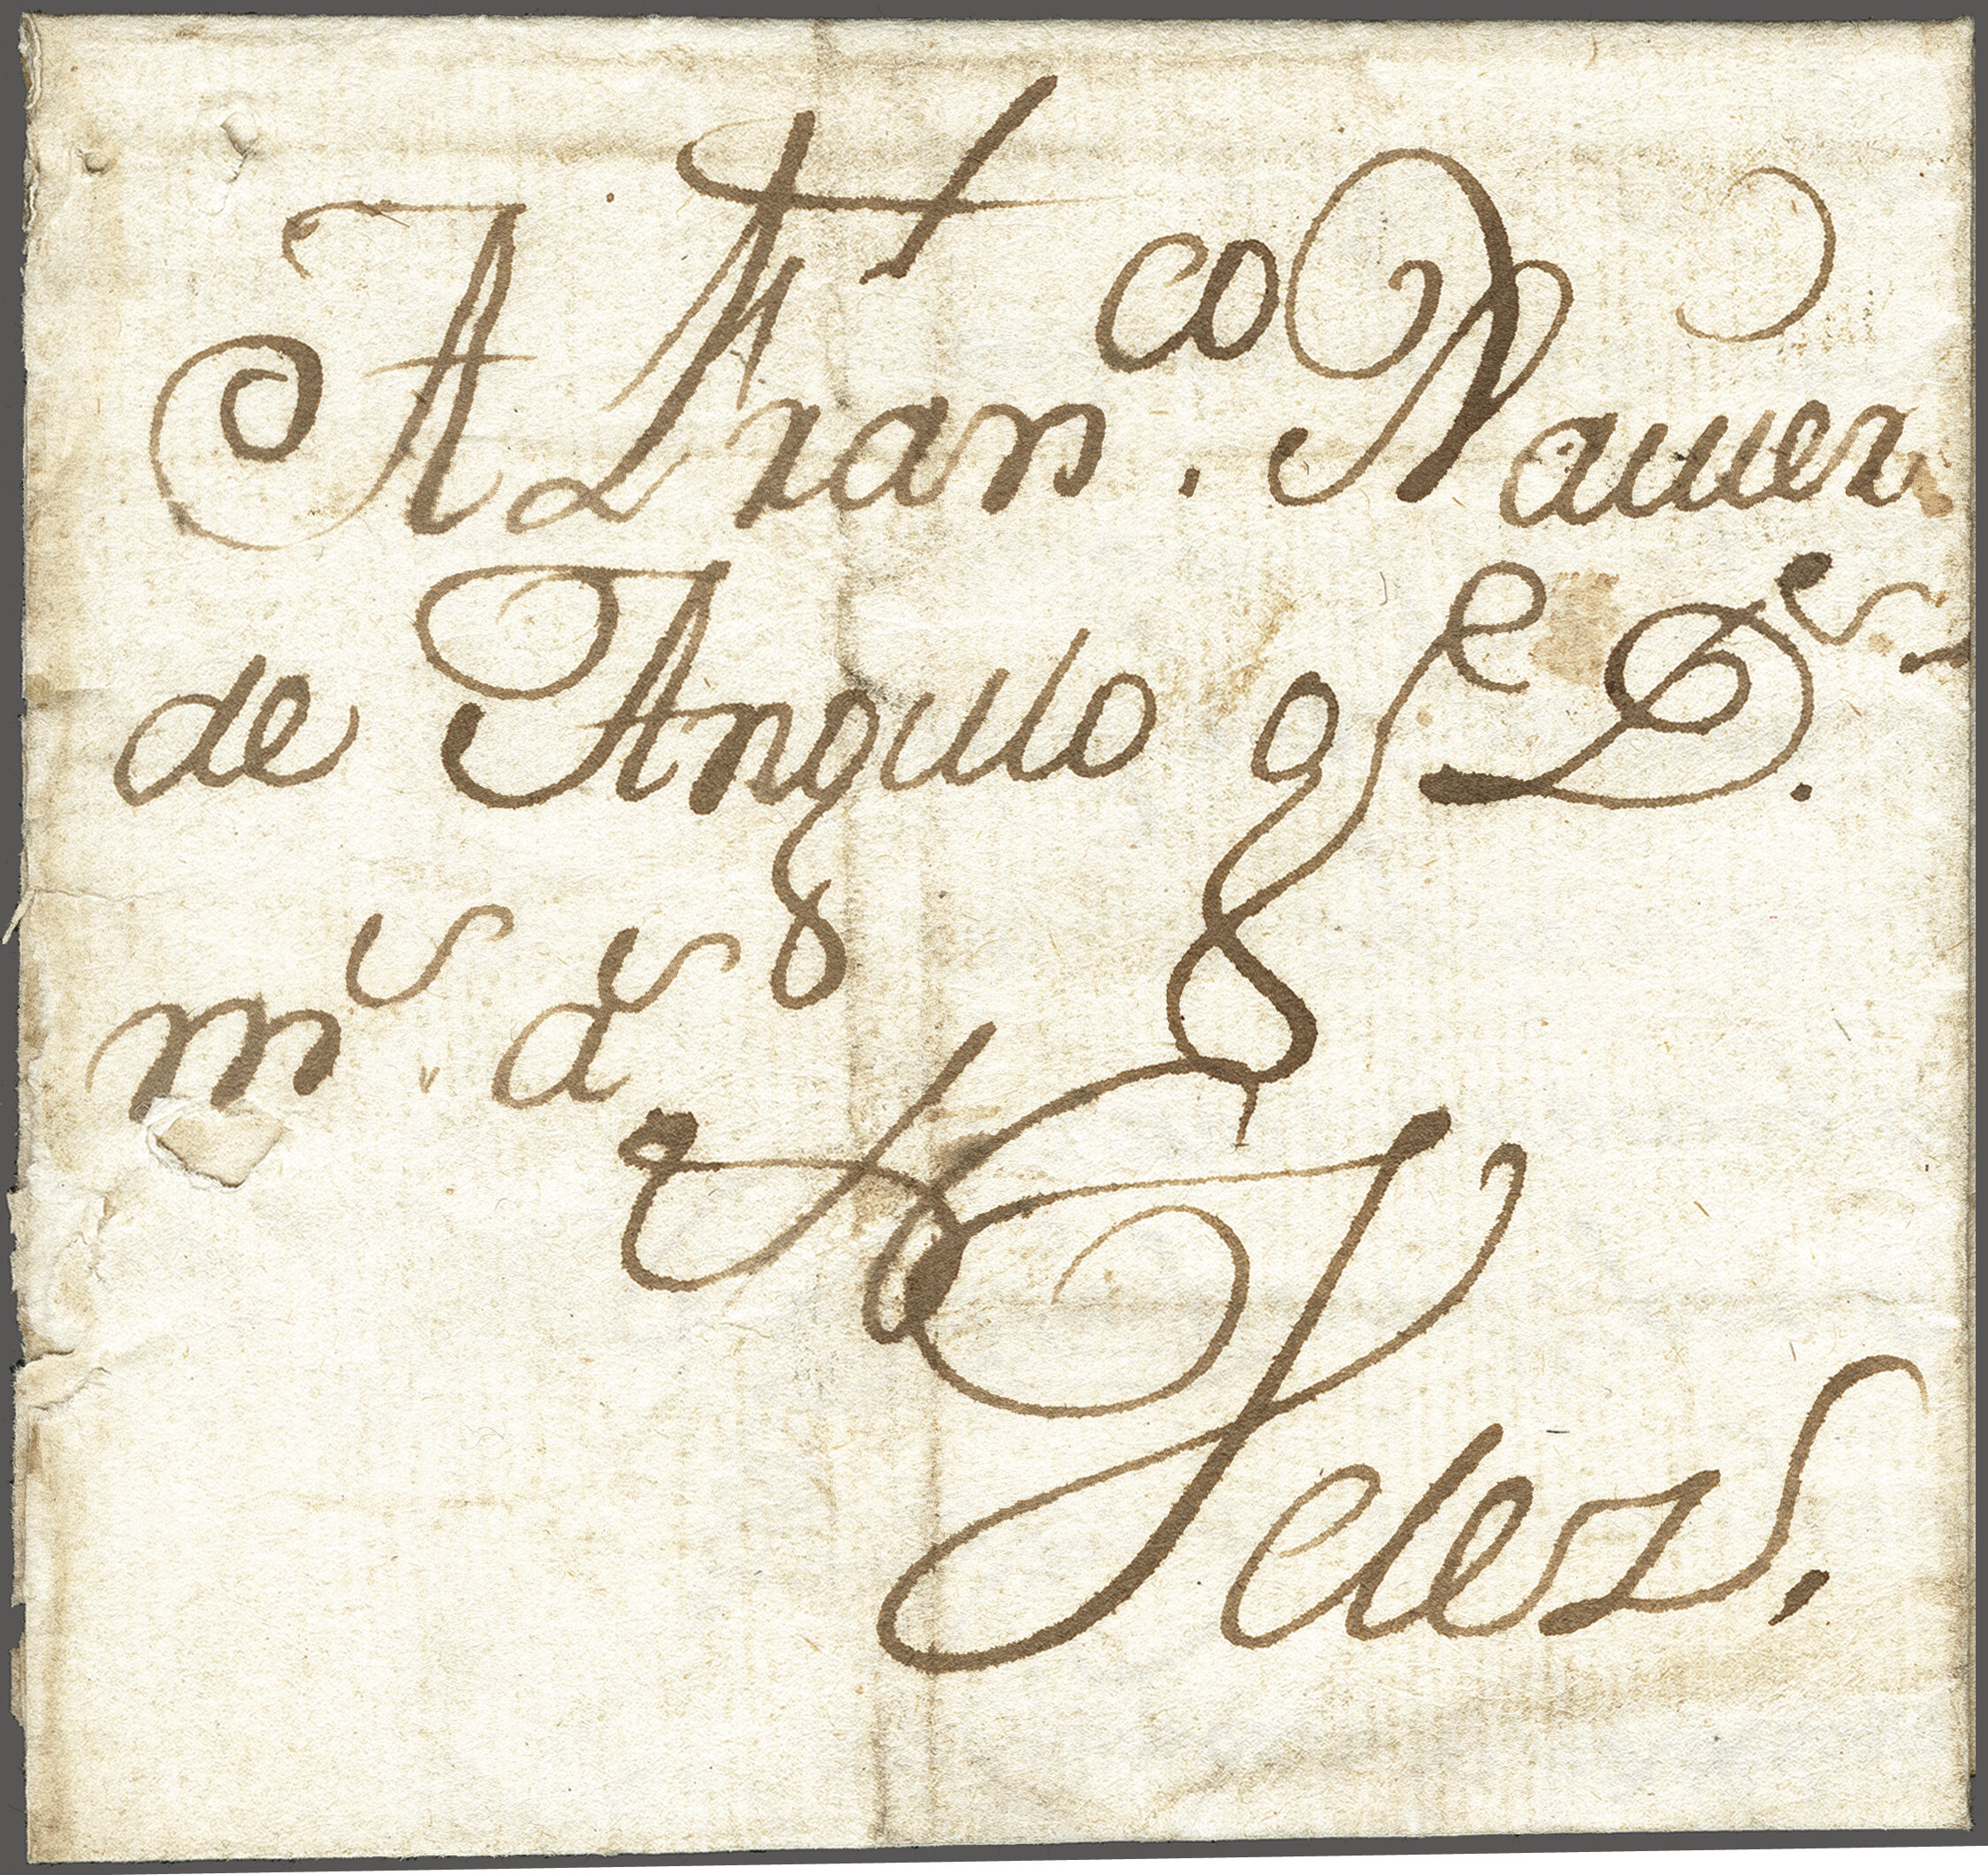 A Fran.co Xauier
de Angulo q.e D.s
m.s a.s
Velez.